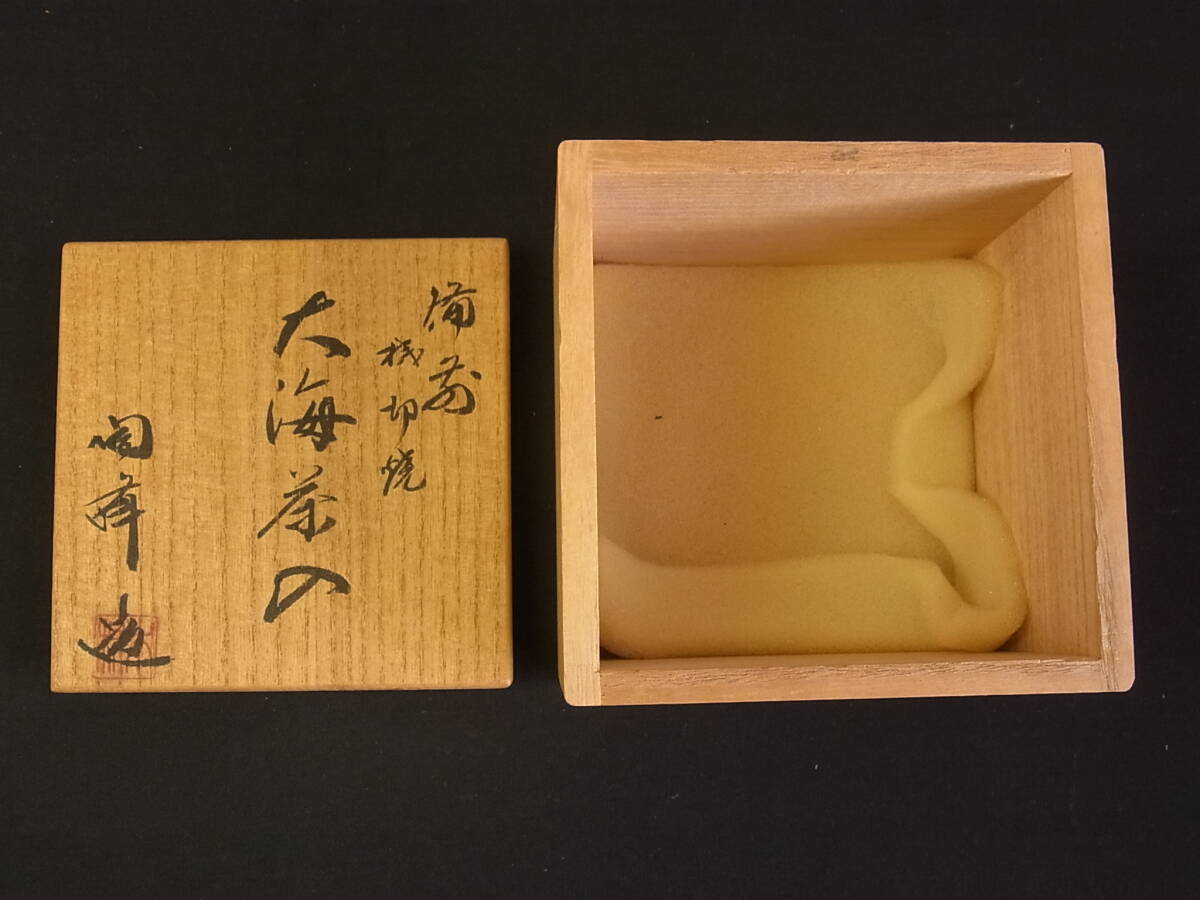 備前
桟切焼
大海茶入
陶峰造